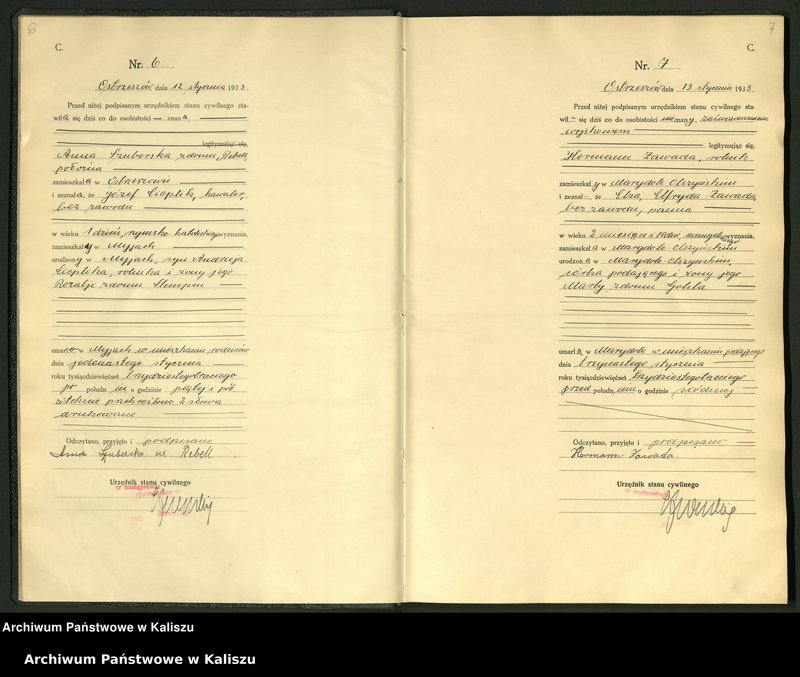 6
C.
Nr. 6
Ostrzeszów, dnia 12 stycznia 1933
Przed niżej podpisanym urzędnikiem stanu cywilnego sta-
wiła się dziś co do osobistości — znana.
legitymując się,
Anna Szuberska z domu Rebell,
położna
zamieszkała w Ostrzeszowie
i zeznała, że Józef Cieplik, kawaler,
bez zawodu
w wieku 1 dzień, rzymsko katolickiego wyznania,
zamieszkały w Myjach
urodzony w Myjach, syn Andrzeja
Cieplika, rolnika i żony jego
Rozalji z domu
umarł w Myjach w mieszkaniu rodziców
dnia jedenastego stycznia
roku tysiącdziewięćset trzydziestegotrzeciego
po południu o godzinie piątej i pół
przekreślono 2 słowa
drukowano
Odczytano, przyjęto i podpisano
Anna Szuberska ur Rebell
Urzędnik stanu cywilnego
w zastępstwie
7
C.
Nr. 7
Ostrzeszów, dnia 13 stycznia 1933
Przed niżej podpisanym urzędnikiem stanu cywilnego sta-
wił się dziś co do osobistości uznany zaświadczeniem
wojskowem
legitymując się,
Hermann Zawada, rolnik
zamieszkały w Marydole Olszyńskim
i zeznał, że Elza, Elfryda Zawada,
bez zawodu, panna
w wieku 2 miesiące dni, ewangelickiego wyznania,
zamieszkała w Marydole Olszyńskim
urodzona w Marydole Olszyńskim,
córka podającego i żony jego
Marty z domu Gobila
umarła w Marydole w mieszkaniu podającego
dnia trzynastego stycznia
roku tysiącdziewięćset trzydziestegotrzeciego
przed południem o godzinie siódmej
Odczytano, przyjęto i podpisano
Hermann Zawada.
Urzędnik stanu cywilnego
w zastępstwie
Archiwum Państwowe w Kaliszu
Archiwum Państwowe w Kaliszu